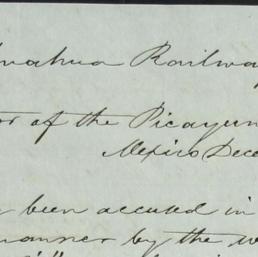 huahua Railway
or of the Picayun
Mexico Dece
been accused in
manner by the w